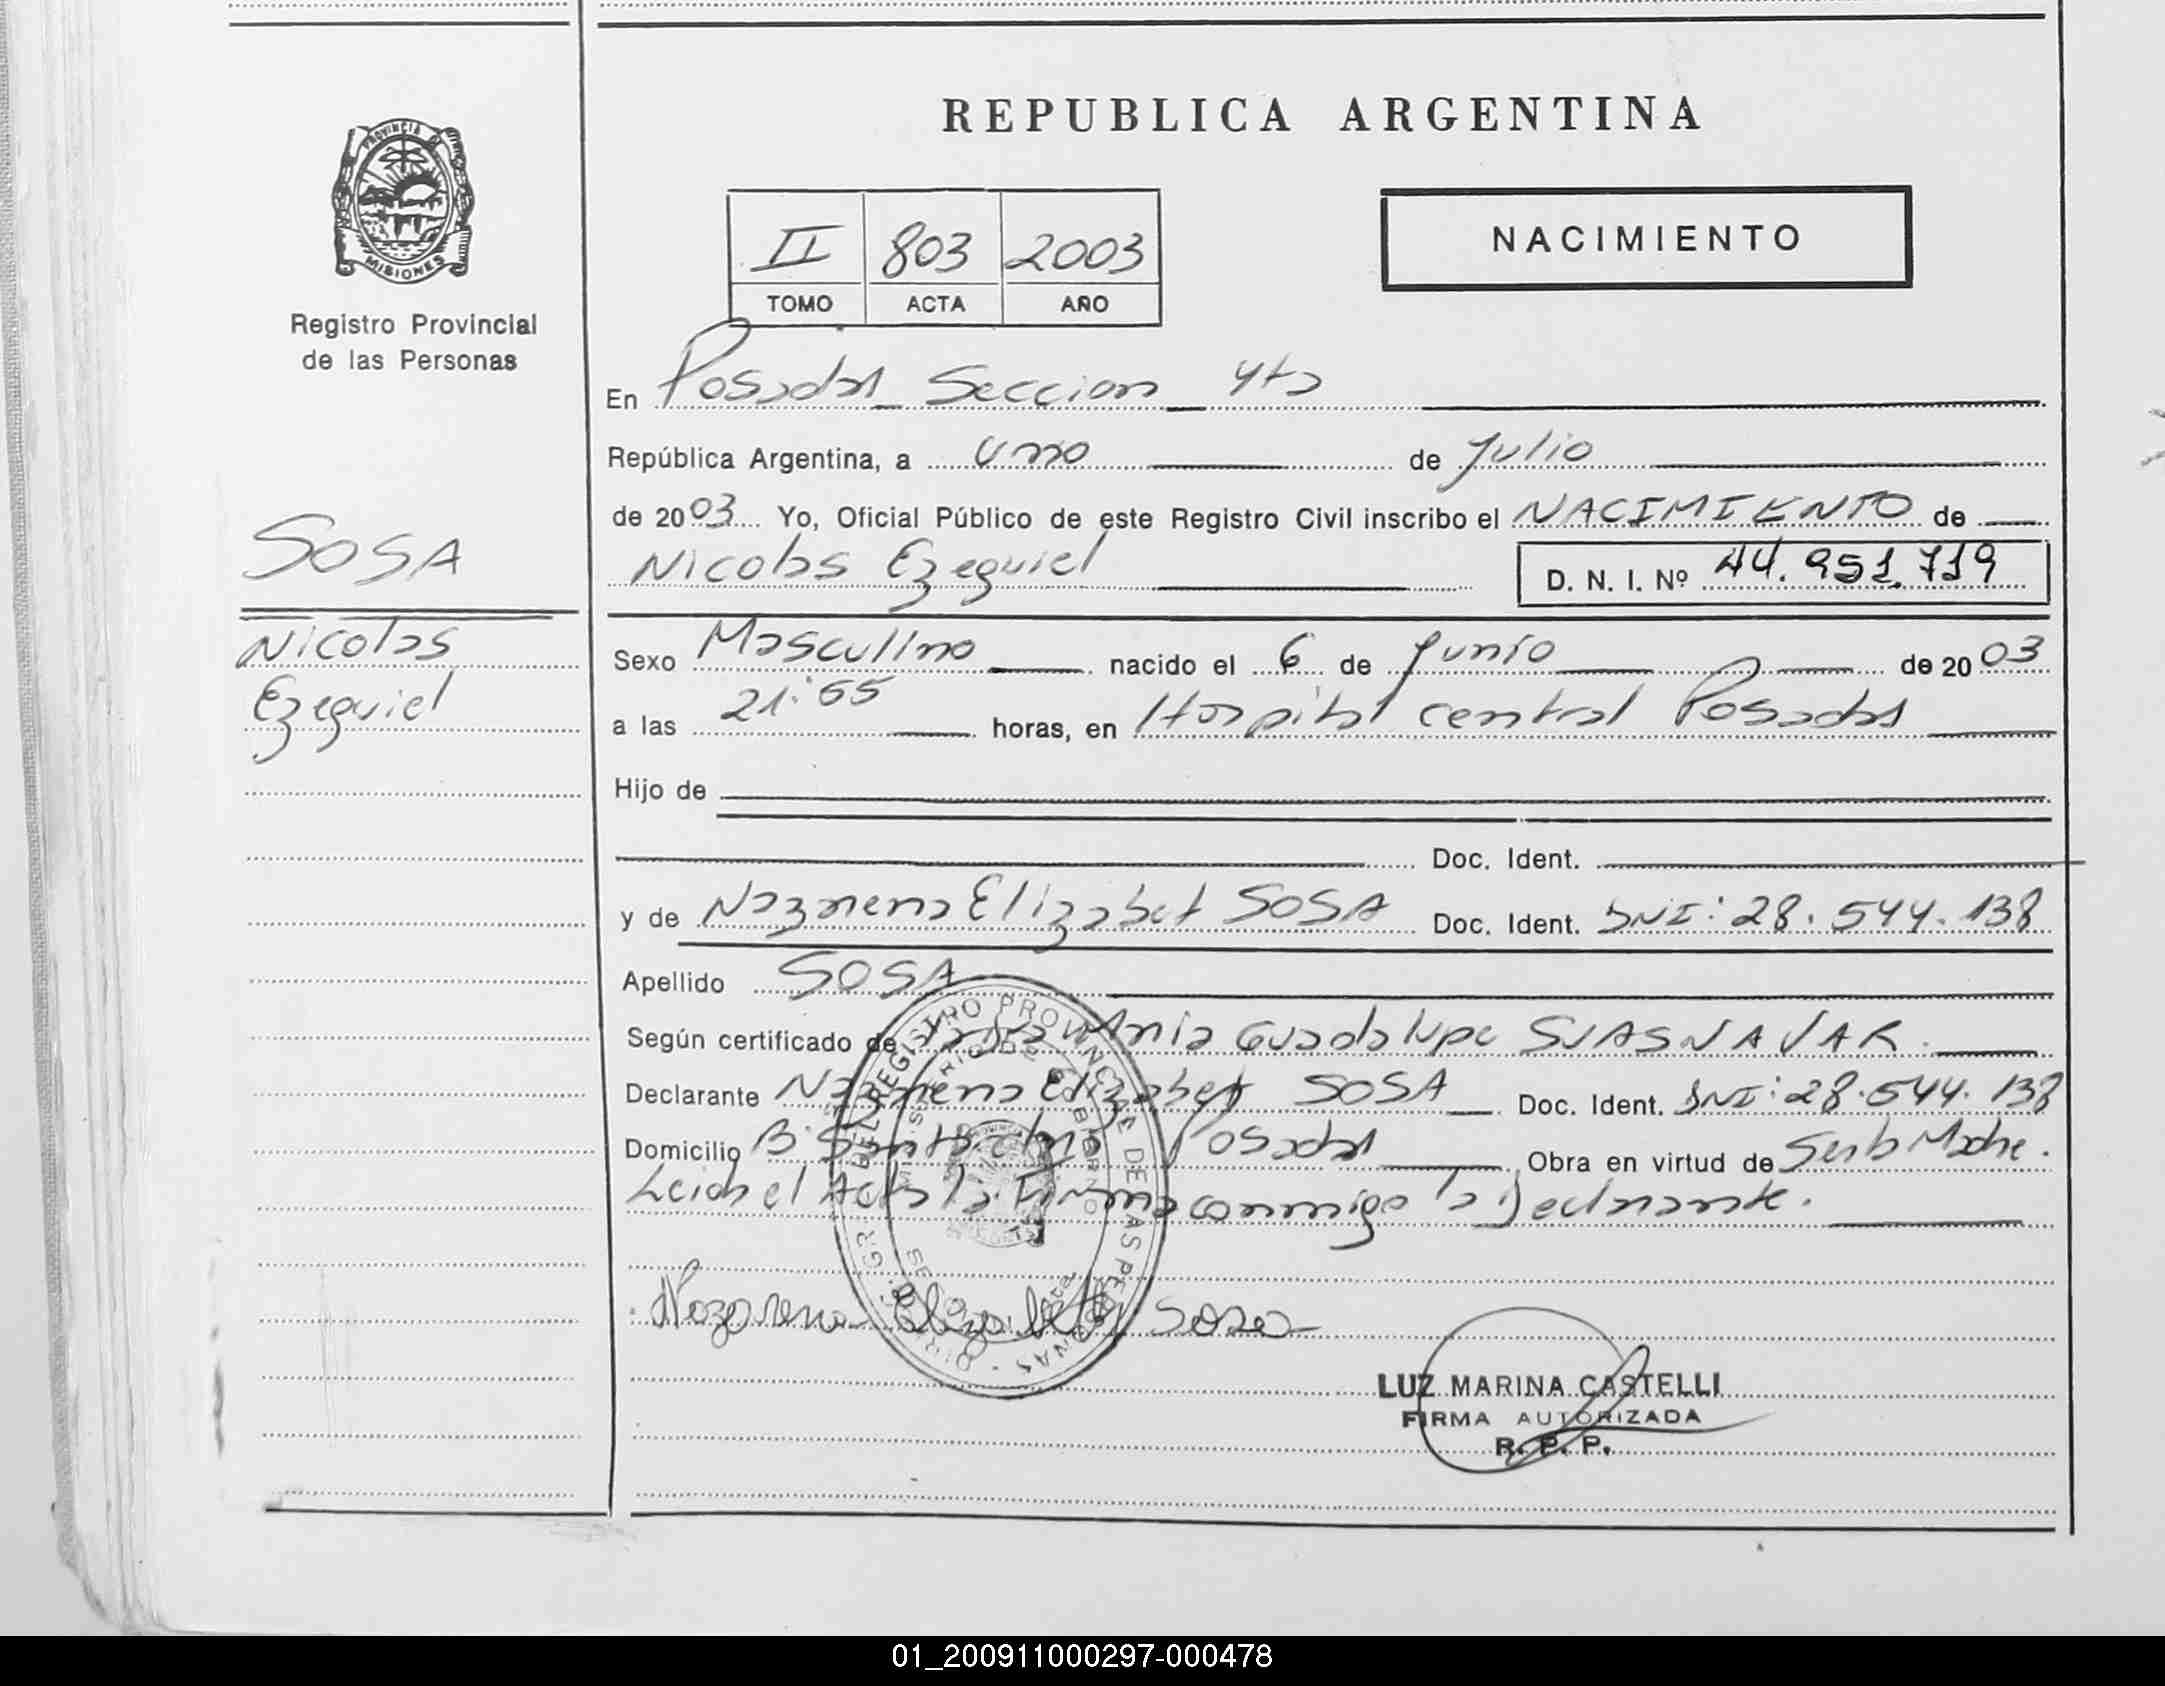 REPUBLICA ARGENTINA
PROVINCIA DE
MISIONES
Registro Provincial
de las Personas
II 803 2003
TOMO ACTA AÑO
NACIMIENTO
En Posadas Seccion 4ta
República Argentina, a uno de Julio
de 2003 Yo, Oficial Público de este Registro Civil inscribo el NACIMIENTO de
SOSA
Nicolas Ezequiel D. N. I. Nº 44.951.719
Nicolas
Ezequiel
Sexo Masculino nacido el 6 de Junio de 2003
a las 21:55 horas, en Hospital central Posadas
Hijo de
Doc. Ident.
y de Nazarena Elizabet SOSA Doc. Ident. DNI: 28.544.138
Apellido SOSA
Según certificado de Guadalupe SUASNAVAR.
Declarante Nazarena Elizabet SOSA Doc. Ident. DNI: 28.544.138
Domicilio B° Posadas Obra en virtud de Ser la Madre.
Leida el Acta la Firma conmigo la Declarante.
Nazarena Elizabeth Sosa
DIR. GR. DEL REGISTRO PROVINCIAL DE LAS PERSONAS
MINISTERIO DE GOBIERNO
LUZ MARINA CASTELLI
FIRMA AUTORIZADA
R. P. P.
01_200911000297-000478